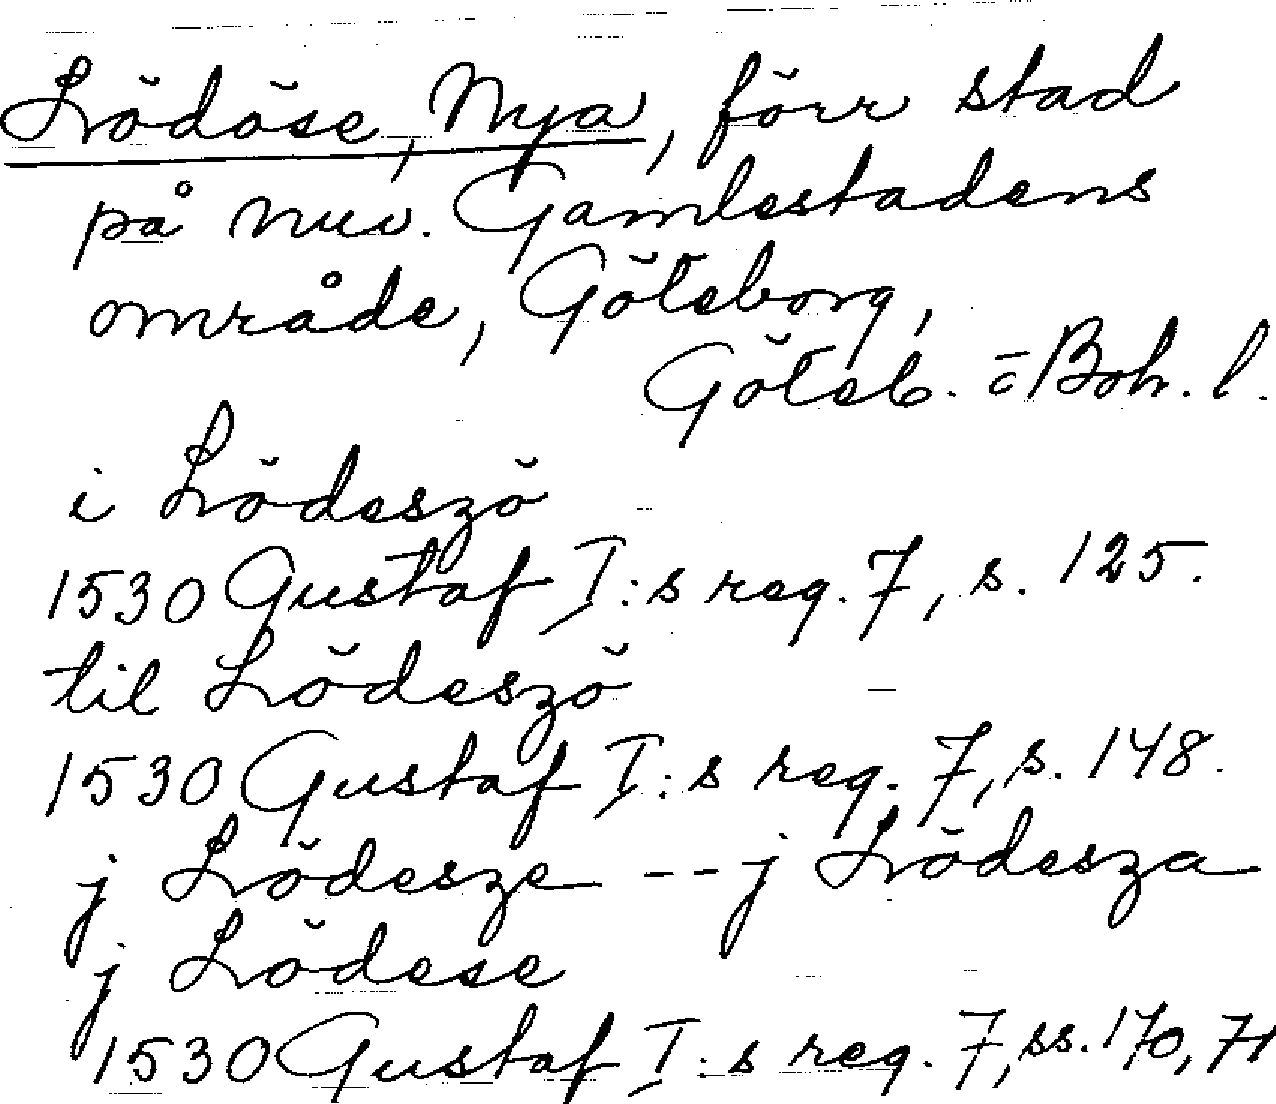 Lödöse, Nya, förr stad
på nuv. Gamlestadens
område, Göteborg,
Göteb. o Boh. l.
i Lödeszö
1530 Gustaf I:s reg. 7, s. 125.
til Lödeszö
1530 Gustaf I:s reg. 7, s. 148.
j Lödesze -- j Lödesza
j Lödese
1530 Gustaf I:s reg. 7, ss. 170, 71